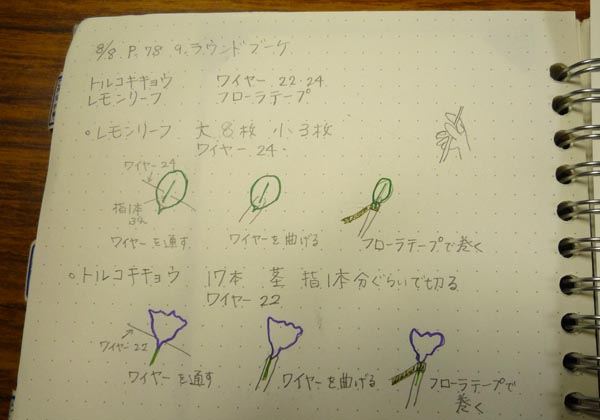 8/8 P.78 9.ラウンドブーケ
トルコキキョウ ワイヤー 22・24
レモンリーフ フローラテープ
○レモンリーフ 大8枚 小3枚
ワイヤー 24・
ワイヤー24
指1本
ワイヤーを通す ワイヤーを曲げる フローラテープで巻く
○トルコキキョウ 17本 茎 指1本分ぐらいで切る
ワイヤー 22
ワイヤー22
ワイヤーを通す ワイヤーを曲げる フローラテープで
巻く